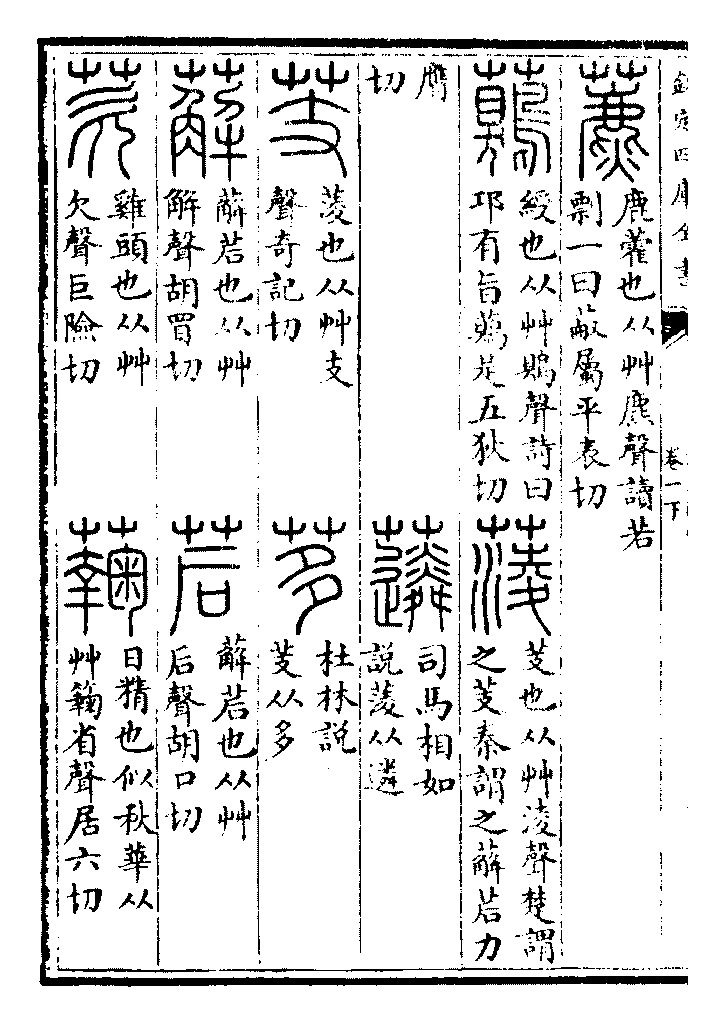 欽定四庫全書
卷一下
藨
鹿藿也从艸麃聲讀若
剽一曰蔽屬平表切
綬也从艸鶪聲詩曰
邛有旨是五狄切
蔆
芰也从艸淩聲楚謂
之芰秦謂之薢茩力
膺
切
司馬相如
說蔆从遴
芰
蔆也从艸支
聲奇記切
茤
杜林說
芰从多
薢
薢茩也从艸
解聲胡買切
茩
薢茩也从艸
后聲胡口切
芡
雞頭也从艸
欠聲巨險切
蘜
日精也似秋華从
艸省聲居六切